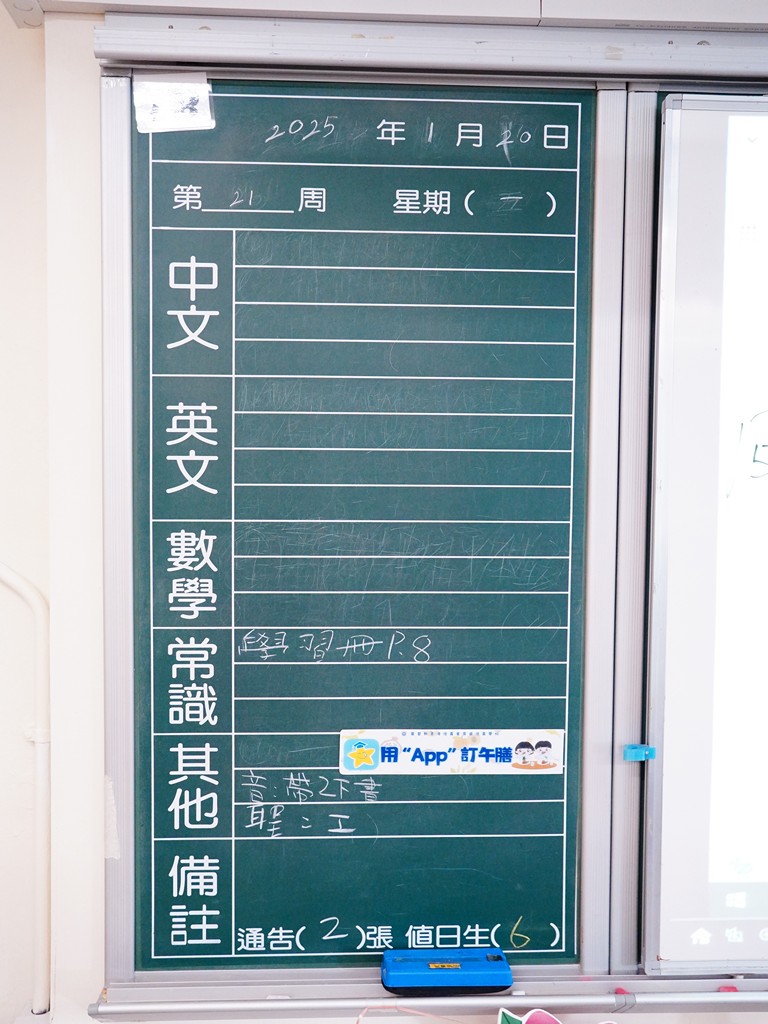 2025 年 1 月 20 日
第 21 周 星期( )
中文
英文
數學
常識 學習冊 P.8
其他
用“App”訂午膳
音:帶2下書
聖:工
備註
通告( 2 )張 值日生( 6 )
5